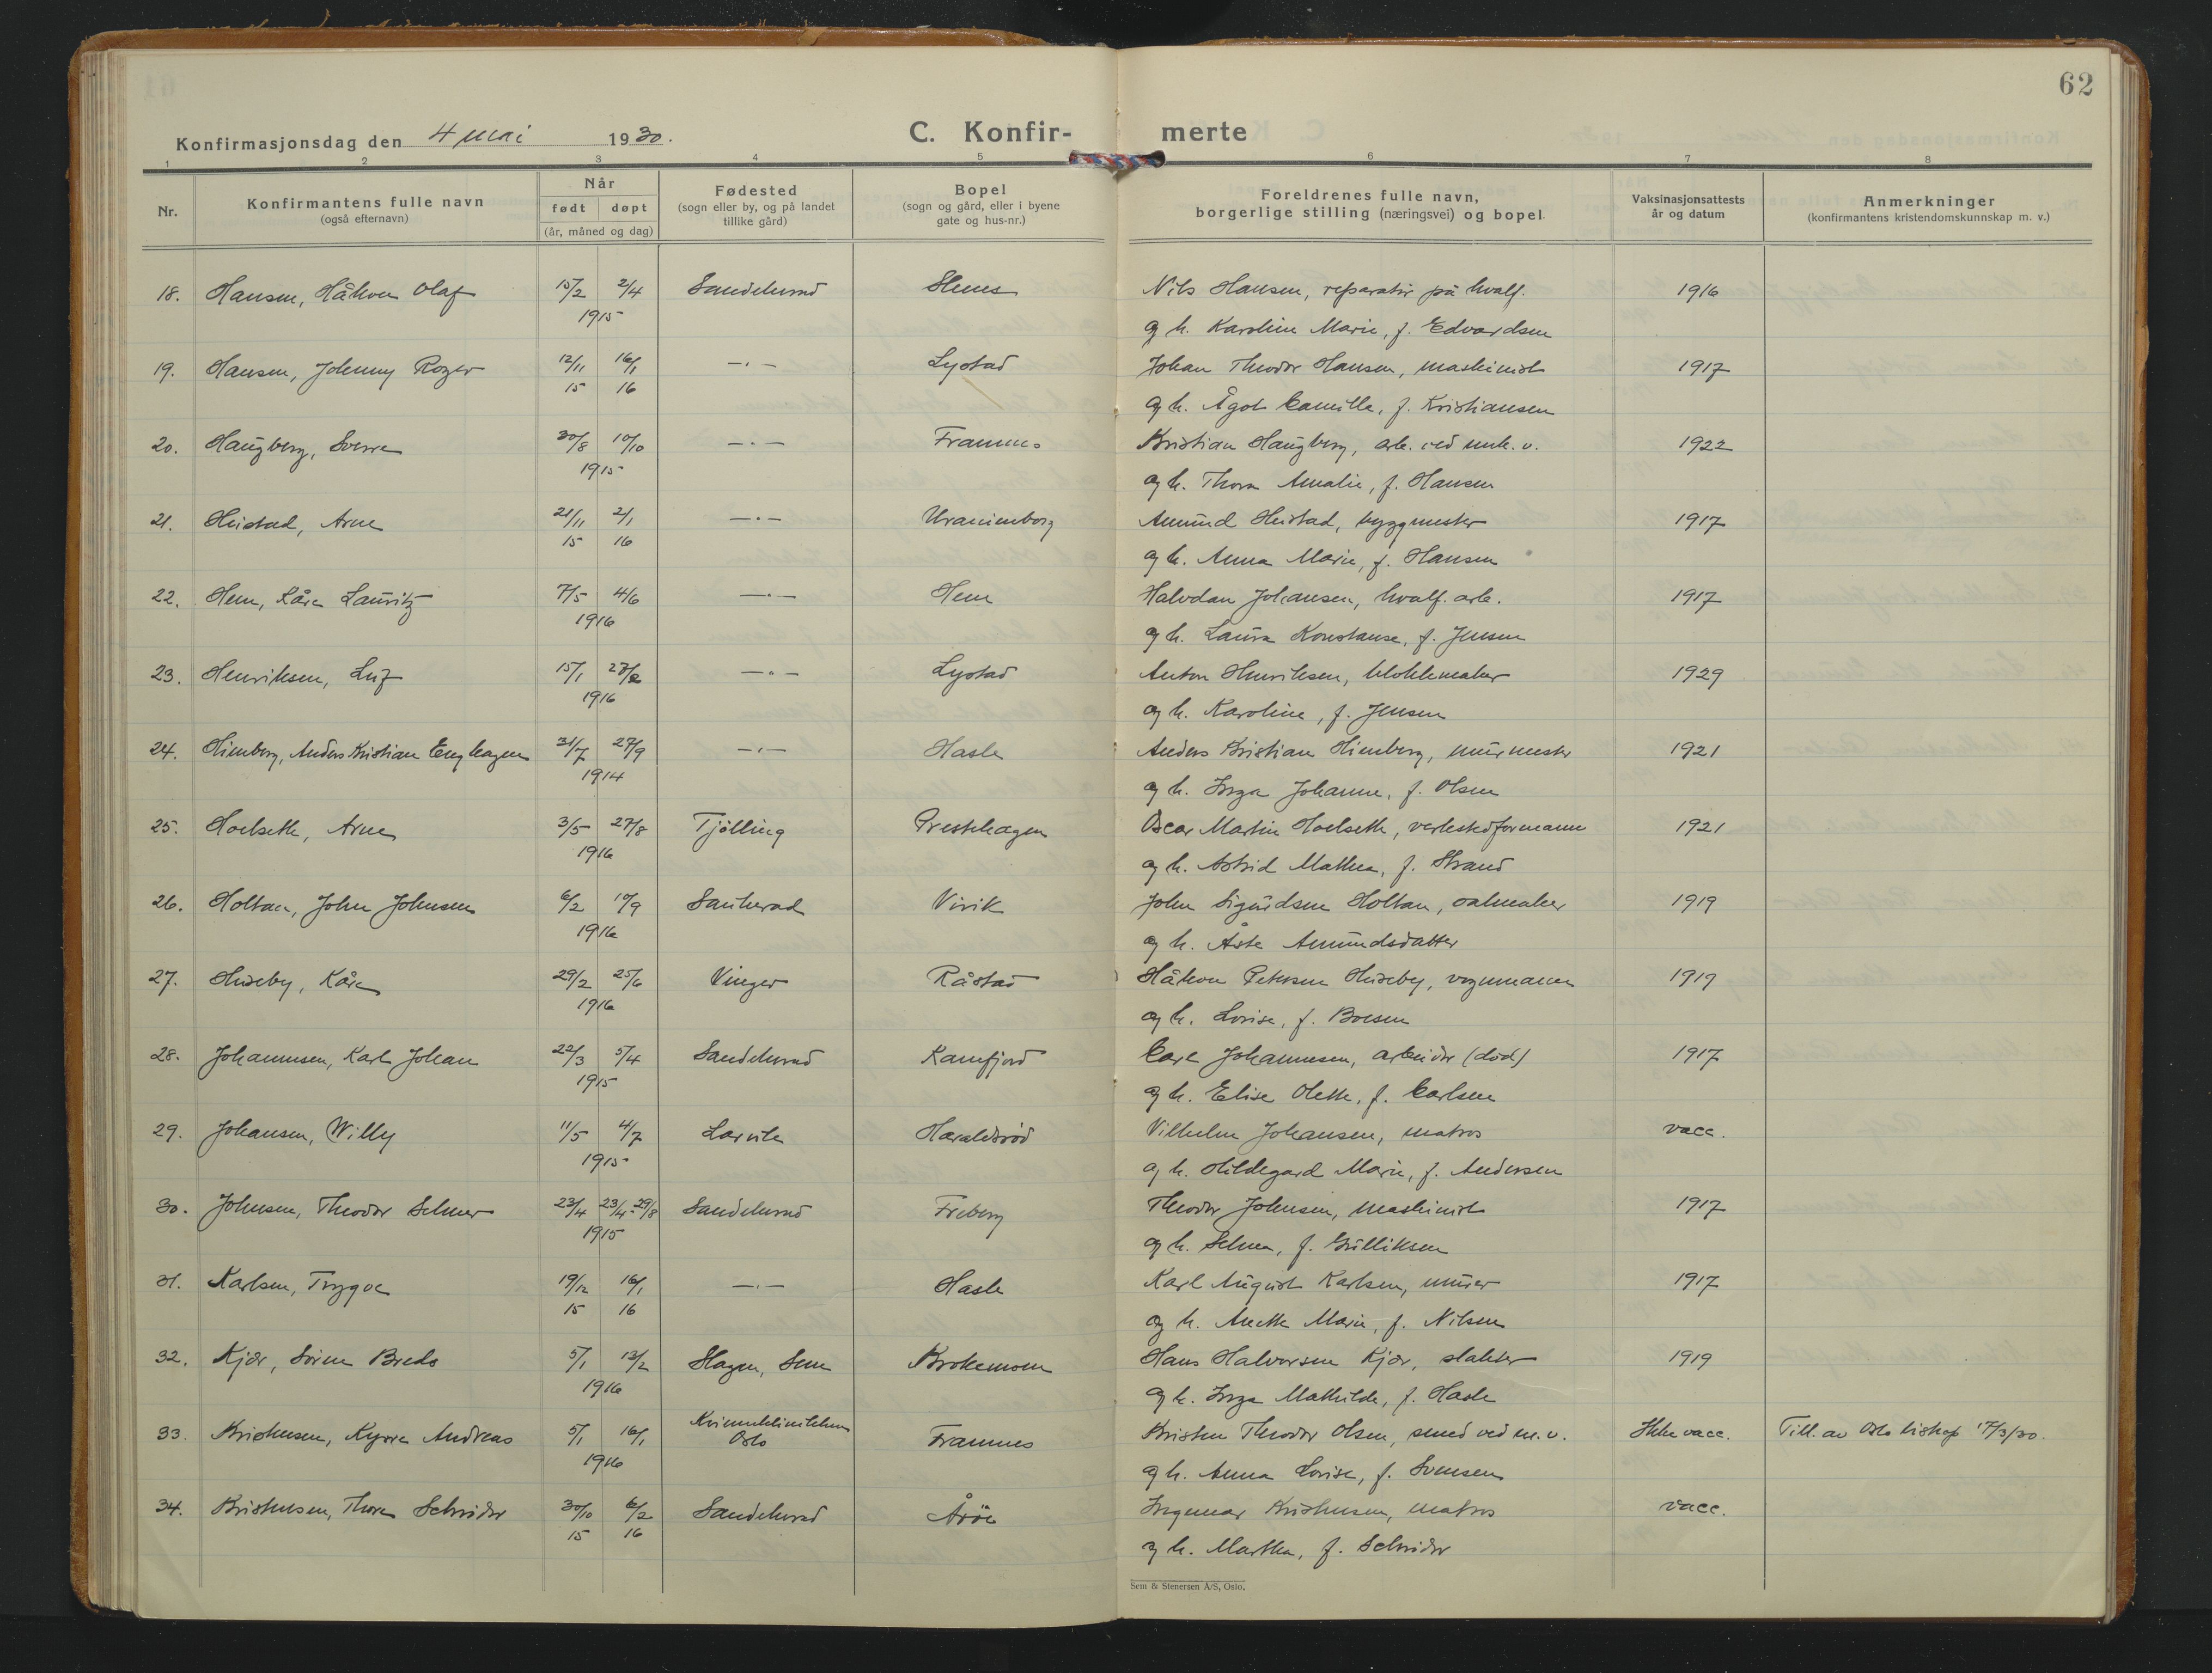 62
Konfirmasjonsdag den 4 mai 1930. C. Konfir- merte
1 2 3 4 5 6 7 8
Nr. Konfirmantens fulle navn (også efternavn) Når født døpt (år, måned og dag) Fødested (sogn eller by, og på landet tillike gård) Bopel (sogn og gård, eller i byene gate og hus-nr.) Foreldrenes fulle navn, borgerlige stilling (næringsvei) og bopel Vaksinasjonsattests år og datum Anmerkninger (konfirmantens kristendomskunnskap m. v.)
18. Hansen, Håkon Olaf 15/2 2/4 Sandeherad Nils Hansen, reparatør på hvalf. 1916
1915 og h. Karoline Marie, f. Edvardsen
19. Hansen, Johnny Roger 12/11 16/1 —·— Lystad Johan Theodor Hansen, maskinist 1917
15 16 og h. Ågot Camilla, f. Kristiansen
20. Haugberg, Sverre 30/8 10/10 —·— Framnes Kristian Haugberg, arb. ved mek. v. 1922
1915 og h. Thora Amalie, f. Hansen
21. Heistad, Arne 21/11 2/1 —·— Uranienborg Amund Heistad, byggmester 1917
15 16 og h. Anna Marie, f. Hansen
22. Hem, Kåre Lauritz 7/5 4/6 —·— Hem Halvdan Johansen, hvalf. arb. 1917
1916 og h. Laura Konstanse, f. Jensen
23. Henriksen, Leif 15/1 27/2 —·— Lystad Anton Henriksen, blokkmaker 1929
1916 og h. Karoline, f. Jensen
24. Himberg, Anders Kristian Enghagen 31/7 27/9 —·— Hasle Anders Kristian Himberg, murmester 1921
1914 og h. Inga Johanne, f. Olsen
25. Hoelseth, Arne 3/5 27/8 Tjølling Presthagen Oscar Martin Hoelseth, verkstedformann 1921
1916 og h. Astrid Mathea, f. Strand
26. Holtan, John Johnsen 6/2 10/9 Sauherad Virik John Sigurdsen Holtan, salmaker 1919
1916 og h. Åste Amundsdatter
27. Huseby, Kåre 29/2 25/6 Vinger Råstad Håkon Petersen Huseby, vognmann 1919
1916 og h. Lovise, f. Boesen
28. Johannesen, Karl Johan 22/3 5/4 Sandeherad Kamfjord Carl Johannesen, arbeider (død) 1917
1915 og h. Elise Olette, f. Carlsen
29. Johansen, Willy 11/5 4/7 Larvik Haraldsrød Vilhelm Johansen, matros vacc.
1915 og h. Hildegard Marie, f. Andersen
30. Johnsen, Theodor Selmer 23/4 23/4-29/8 Sandeherad Freberg Theodor Johnsen, maskinist 1917
1915 og h. Selma, f. Gulliksen
31. Karlsen, Trygve 19/12 16/1 —·— Hasle Karl August Karlsen, murer 1917
15 16 og h. Anette Marie, f. Nilsen
32. Kjær, Sören Bredo 5/1 13/2 Slagen, Sem Brokemoen Hans Halvorsen Kjær, slakter 1919
1916 og h. Inga Mathilde, f. Hasle
33. Kristensen, Kyrre Andreas 5/1 16/1 Kvinneklinikken Oslo Framnes Kristen Theodor Olsen, smed ved m. v. Ikke vacc. Till. av Oslo biskop 17/3/30.
1916 og h. Anna Lovise, f. Svensen
34. Kristensen, Thore Schrøder 30/10 6/2 Sandeherad Årøe Ingemar Kristensen, matros vacc.
15 16 og h. Martha, f. Schrøder
Sem & Stenersen A/S, Oslo.